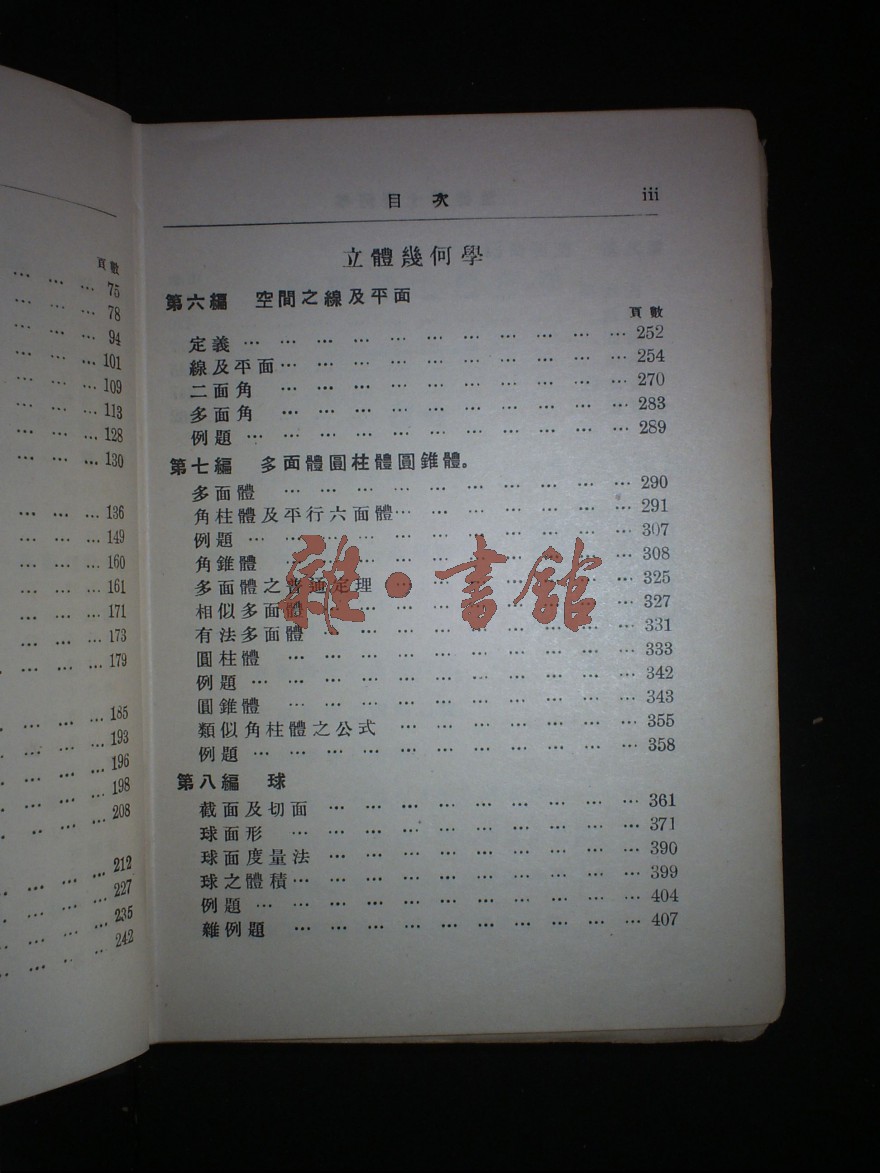 頁數
… … … 75
… … … 78
… … … 94
… … … 101
… … … 109
… … … 113
… … … 128
… … … 130
… … … 136
… … … 149
… … … 160
… … … 161
… … … 171
… … … 173
… … … 179
… … … 185
… … … 193
… … … 196
… … … 198
… … … 208
… … … 212
… … … 227
… … … 235
… … … 242
目次 iii
立體幾何學
第六編 空間之線及平面
頁數
定義 … … … … … … … … … … … 252
線及平面 … … … … … … … … … … 254
二面角 … … … … … … … … … … 270
多面角 … … … … … … … … … … 283
例題 … … … … … … … … … … … 289
第七編 多面體圓柱體圓錐體。
多面體 … … … … … … … … … … 290
角柱體及平行六面體 … … … … … … … 291
例題 … … … … … … … … … … … 307
角錐體 … … … … … … … … … … 308
多面體之普通定理 … … … … … … … 325
相似多面體 … … … … … … … … … 327
有法多面體 … … … … … … … … … 331
圓柱體 … … … … … … … … … … 333
例題 … … … … … … … … … … … 342
圓錐體 … … … … … … … … … … 343
類似角柱體之公式 … … … … … … … 355
例題 … … … … … … … … … … … 358
第八編 球
截面及切面 … … … … … … … … … 361
球面形 … … … … … … … … … … 371
球面度量法 … … … … … … … … … 390
球之體積 … … … … … … … … … … 399
例題 … … … … … … … … … … … 404
雜例題 … … … … … … … … … … 407
雜·書館